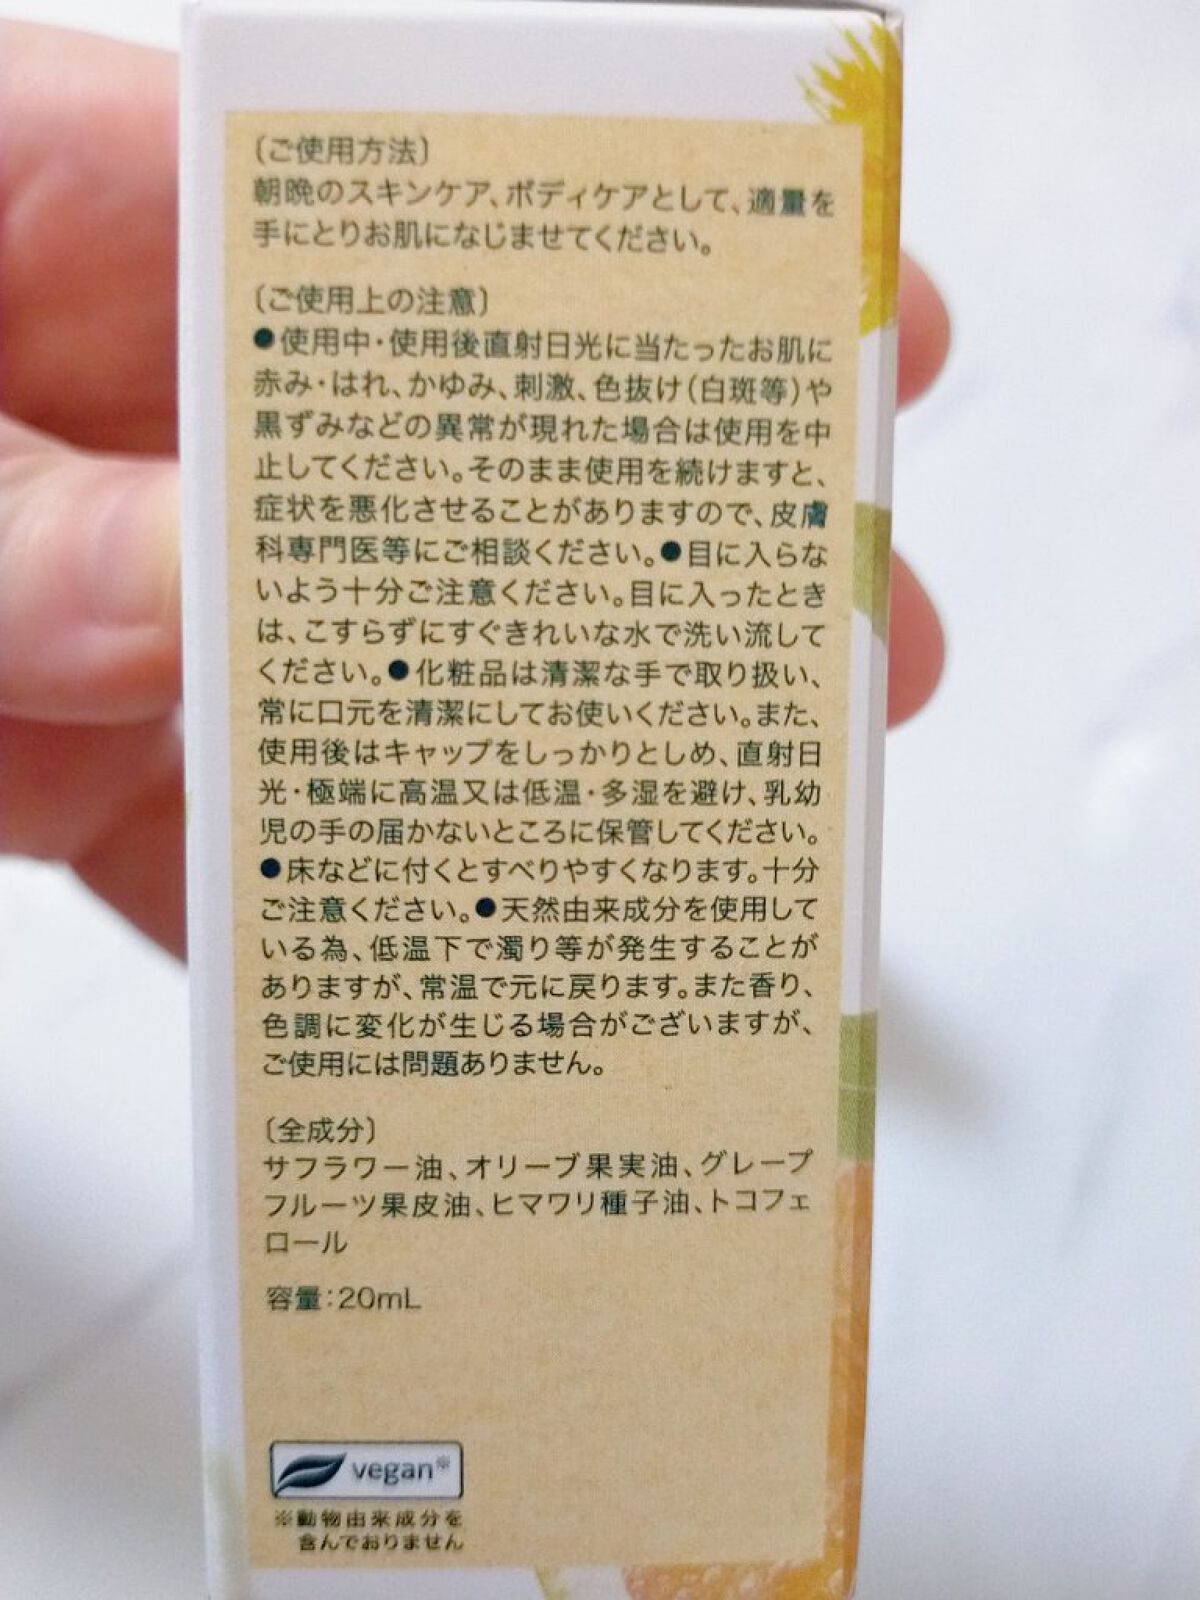 〔ご使用方法〕
朝晩のスキンケア、ボディケアとして、適量を
手にとりお肌になじませてください。
〔ご使用上の注意〕
●使用中・使用後直射日光に当たったお肌に
赤み・はれ、かゆみ、刺激、色抜け(白斑等)や
黒ずみなどの異常が現れた場合は使用を中
止してください。そのまま使用を続けますと、
症状を悪化させることがありますので、皮膚
科専門医等にご相談ください。●目に入らな
いよう十分ご注意ください。目に入ったとき
は、こすらずにすぐきれいな水で洗い流して
ください。●化粧品は清潔な手で取り扱い、
常に口元を清潔にしてお使いください。また、
使用後はキャップをしっかりとしめ、直射日
光・極端に高温又は低温・多湿を避け、乳幼
児の手の届かないところに保管してください。
●床などに付くとすべりやすくなります。十分
ご注意ください。●天然由来成分を使用して
いる為、低温下で濁り等が発生することが
ありますが、常温で元に戻ります。また香り、
色調に変化が生じる場合がございますが、
ご使用には問題ありません。
〔全成分〕
サフラワー油、オリーブ果実油、グレープ
フルーツ果皮油、ヒマワリ種子油、トコフェ
ロール
容量:20mL
vegan※
※動物由来成分を
含んでおりません